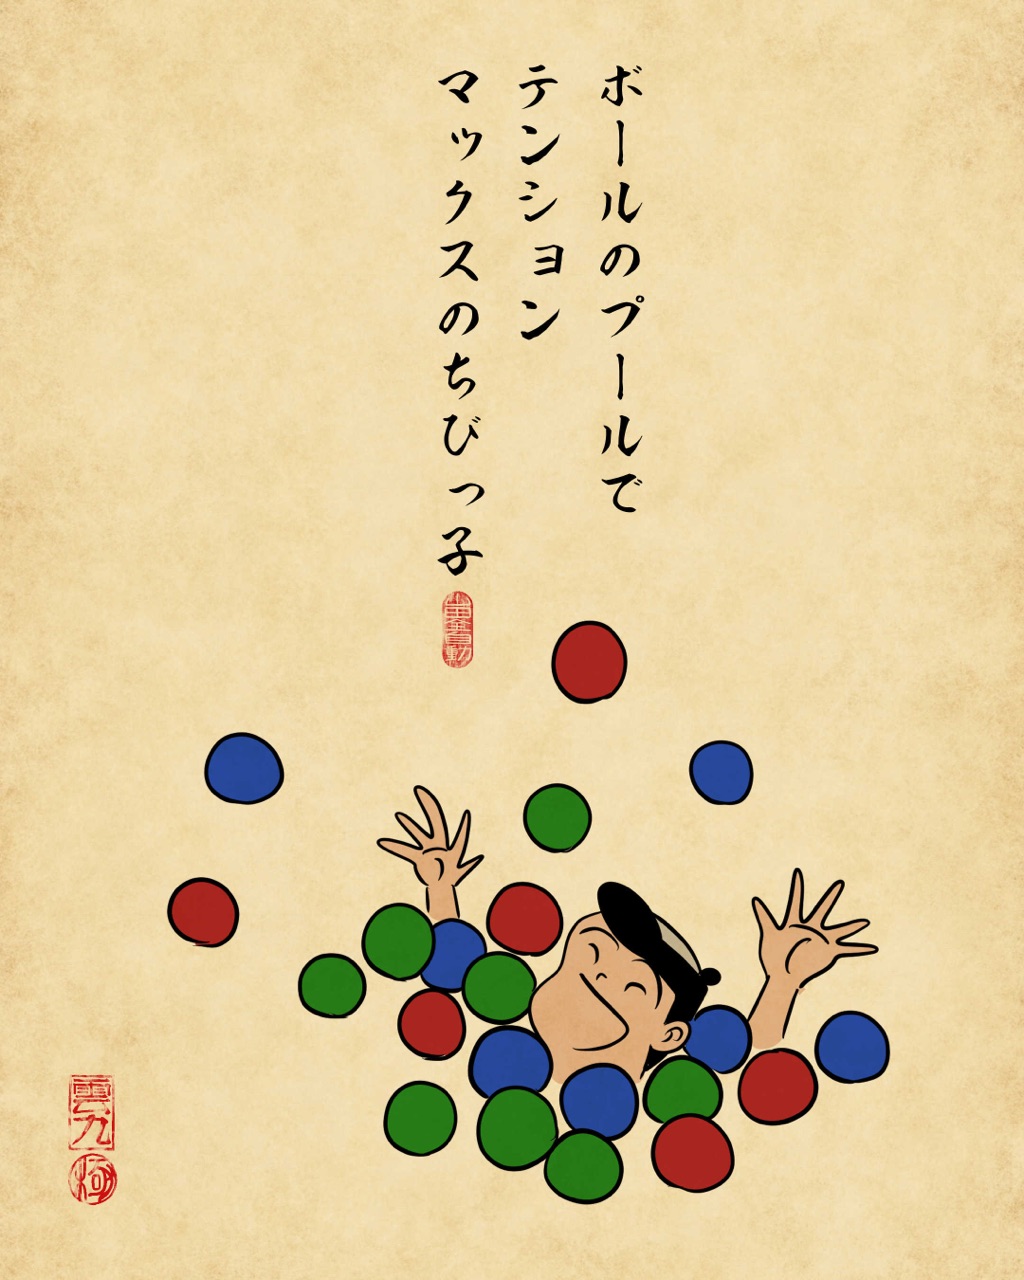 ボールのプールで
テンション
マックスのちびっ子